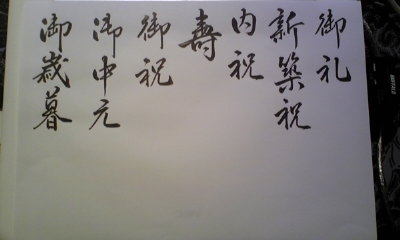 御礼
新築祝
内祝
壽
御祝
御中元
御歳暮